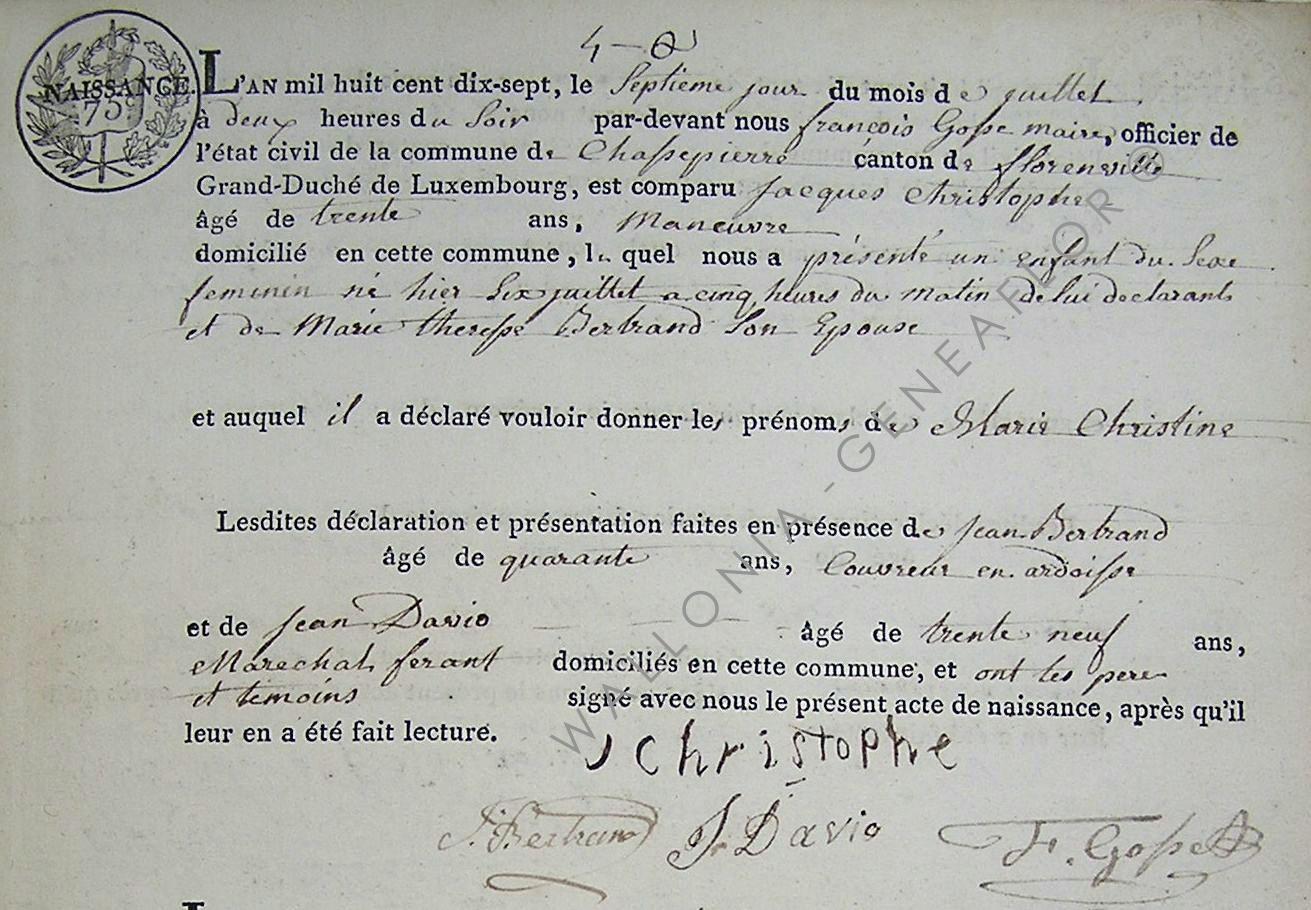 NAISSANCE.
75c
L'AN mil huit cent dix-sept, le Septieme jour du mois de juillet
à deux heures du Soir par-devant nous françois Gosse maire, officier de
l'état civil de la commune de Chassepierre canton de florenville
Grand-Duché de Luxembourg, est comparu Jacques Christophe
âgé de trente ans, Maneuvre
domicilié en cette commune, le quel nous a présenté un enfant du Sexe
feminin né hier Six juillet a cinq heures du matin de lui declarant
et de Marie theresse Bertrand Son Epouse
et auquel il a déclaré vouloir donner les prénoms de Marie Christine
Lesdites déclaration et présentation faites en présence de Jean Bertrand
âgé de quarante ans, Couvreur en ardoisse
et de Jean Davio âgé de trente neuf ans,
Marechal ferant domiciliés en cette commune, et ont les pere
et temoins signé avec nous le présent acte de naissance, après qu'il
leur en a été fait lecture.
J Christophe
J. Bertrand J. Davio F. Gosse
WALLONIA-GENEAFLOR ©